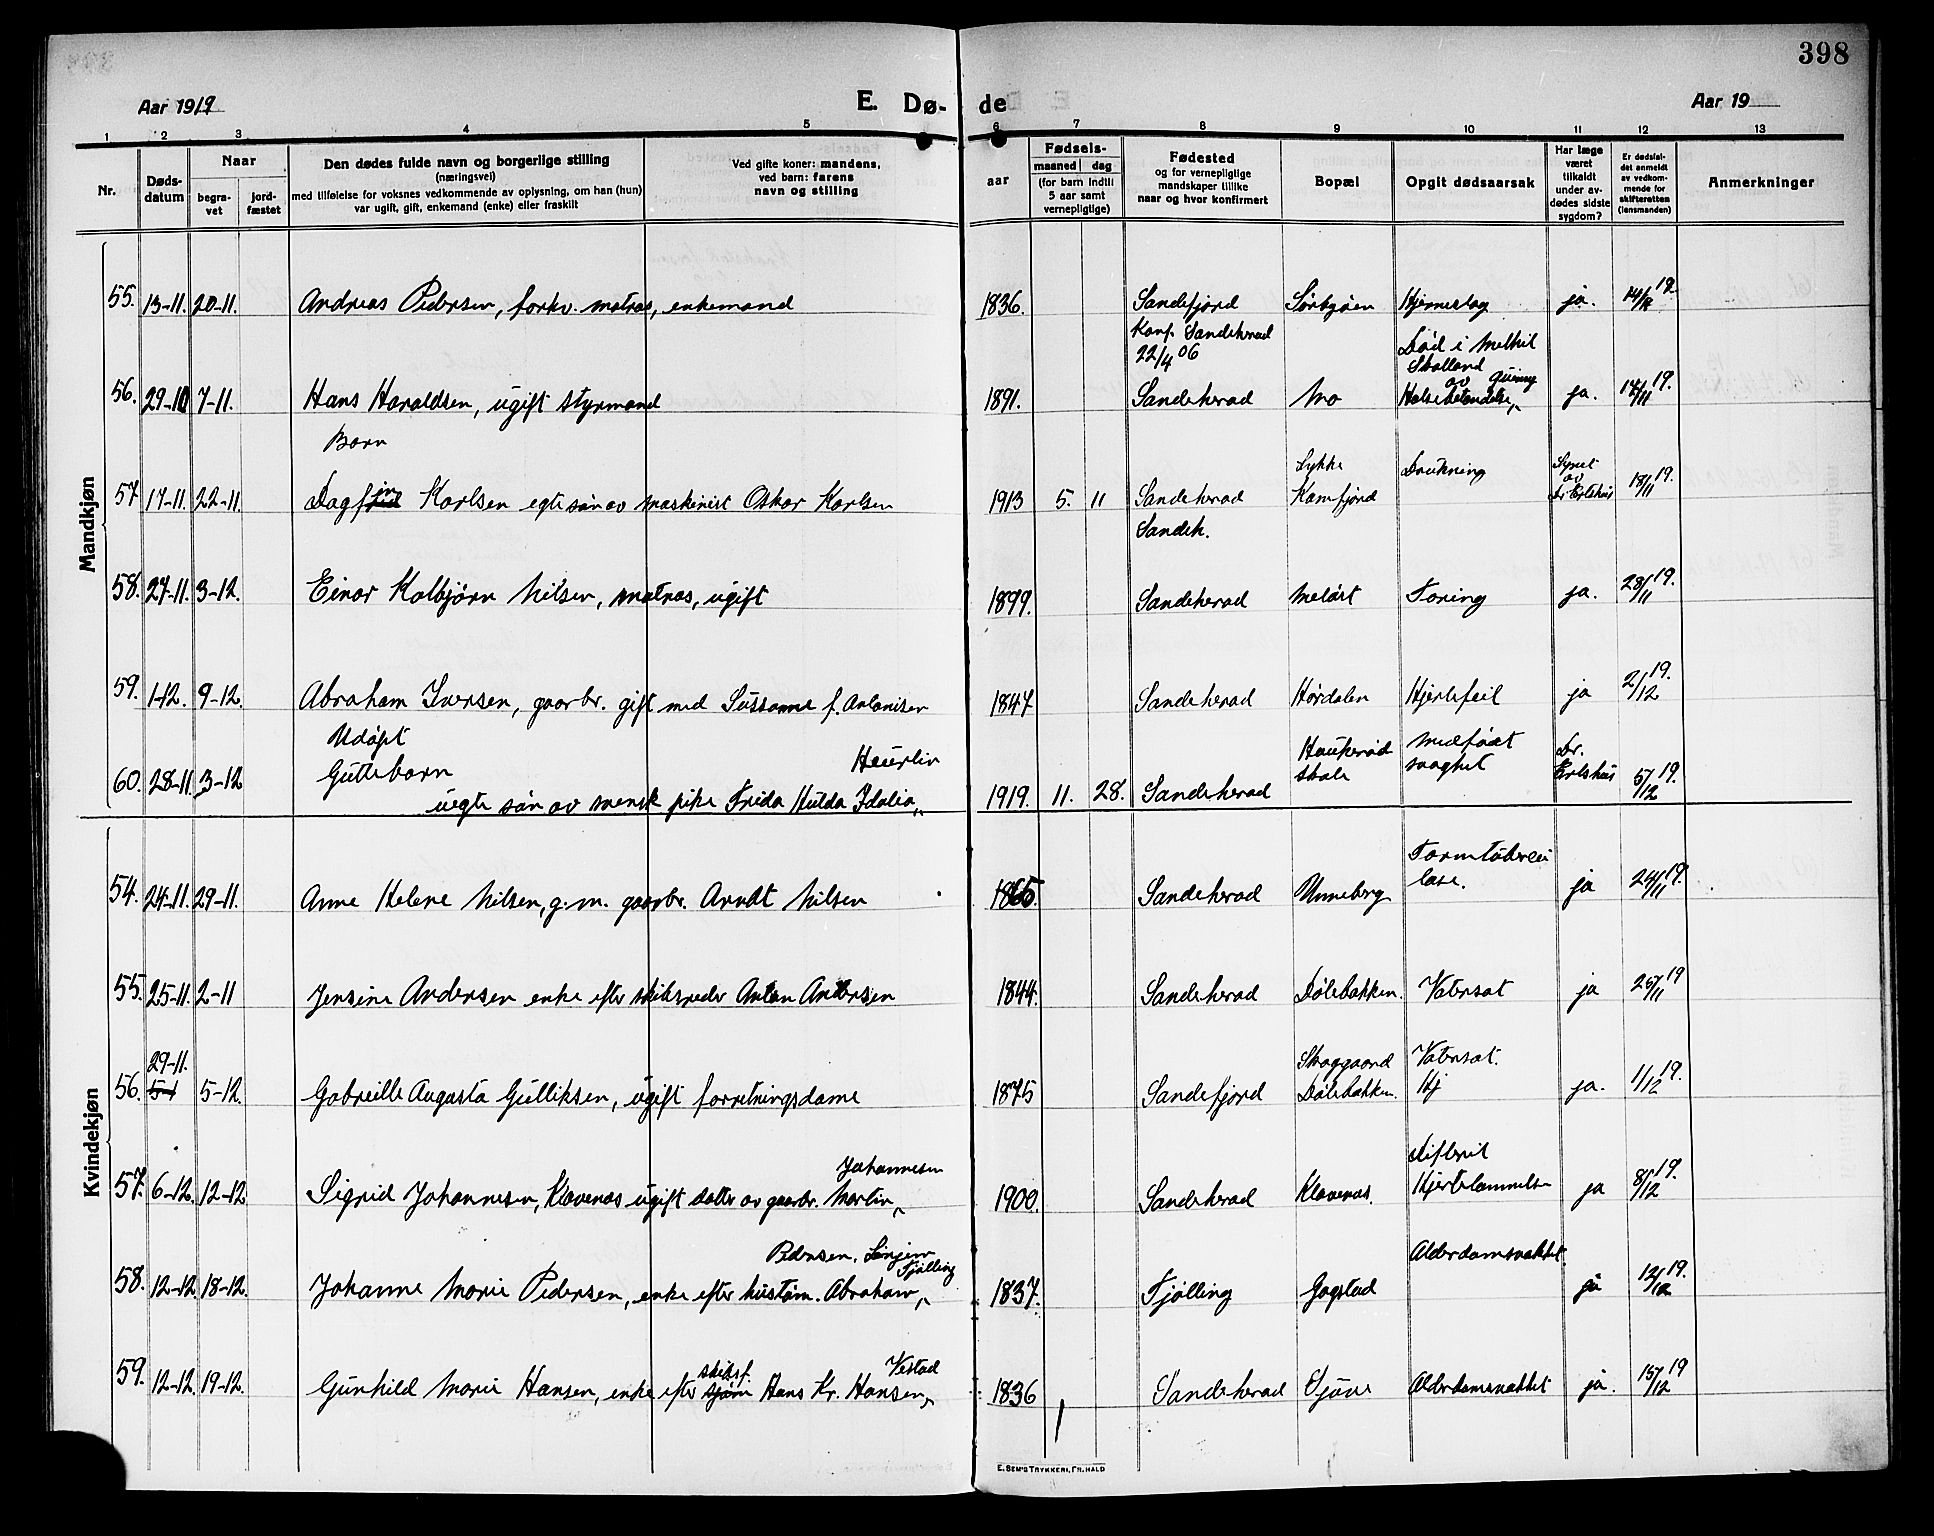 398
Aar 1919 E. Dø- de Aar 19
1 2 3 4 5 6 7 8 9 10 11 12 13
Nr. Døds-datum Naar begra-vet jord-fæstet
Den dødes fulde navn og borgerlige stilling
(næringsvei)
med tilføielse for voksnes vedkommende av oplysning, om han (hun)
var ugift, gift, enkemand (enke) eller fraskilt
Ved gifte koner: mandens,
ved barn: farens
navn og stilling
aar Fødsels- maaned dag
(for barn indtil
5 aar samt
vernepligtige)
Fødested
og for vernepligtige
mandskaper tillike
naar og hvor konfirmert
Bopæl
Opgit dødsaarsak
Har læge
været
tilkaldt
under av-
dødes sidste
sygdom?
Er dødsfal-
det anmeldt
av vedkom-
mende for
skifteretten
(lensmanden)
Anmerkninger
Mandkjøn
55. 13-11. 20-11. Andreas Pedersen, forhv. matros, enkemand 1836. Sandefjord Sørbyøen Hjerneslag ja. 14/11 19.
Konf. Sandeherad
22/4 06
Død i Methil
Skotland
av
56. 29-10 7-11. Hans Haraldsen, ugift styrmand 1891. Sandeherad Mo Halsbetændelse ja. 14/11 19.
Barn
57. 17-11. 22-11. Dagfin Karlsen egte søn av maskinist Oskar Karlsen 1913 5. 11 Sandeherad Lykke Kamfjord Drukning Synet av Dr Ertshus 18/11 19.
Sandeh.
58. 27-11. 3-12. Einar Kolbjørn Nilsen, matros, ugift 1899. Sandeherad Meløst Tæring ja. 28/11 19.
59. 1-12. 9-12. Abraham Iversen, gaarbr. gift med Sussanne f. Antonisen 1847 Sandeherad Hørdalen Hjertefeil ja 2/12 19.
Udøpt
60. 28-11. 3-12 Guttebarn
uegte søn av svensk pike Frida Hulda Idalia Heurlin 1919. 11. 28. Sandeherad Haukerød skole Medfødt svaghet Dr. Ertshus 5/12 19.
Kvindekjøn
54. 24-11. 29-11. Anne Helene Nilsen, g.m. gaarbr. Arndt Nilsen 1865. Sandeherad Unneberg ja 24/11 19.
55. 25-11. 2-11 Jensine Andersen enke efter skibsreder Anton Andersen 1844. Sandeherad Dølebakken. Vatersot ja 26/11 19
29-11.
56. 5-12. Gabreille Augusta Gulliksen, ugift forretningsdame 1875 Sandefjord Skoggaard Dølebakken. Vatersot. Hj ja. 1/12 19.
57. 6-12. 12-12. Sigrid Johannesen, Klavenes ugift datter av gaarbr. Martin Johannesen 1900. Sandeherad Klavenes. Difterit Hjertelammelse ja 8/12 19.
58. 12-12. 18-12. Johanne Marie Pedersen, enke efter hustøm. Abraham Pedersen, Tjølling 1837. Tjølling Gogstad Alderdomsvakhet. ja 12/12 19.
59. 12-12. 19-12. Gunhild Marie Hansen, enke efter skibsf. Hans Kr. Hansen, Vestad 1836 Sandeherad Sjøve Alderdomsvakhet ja. 15/12 19
E. SEM'S TRYKKERI, FR.HALD